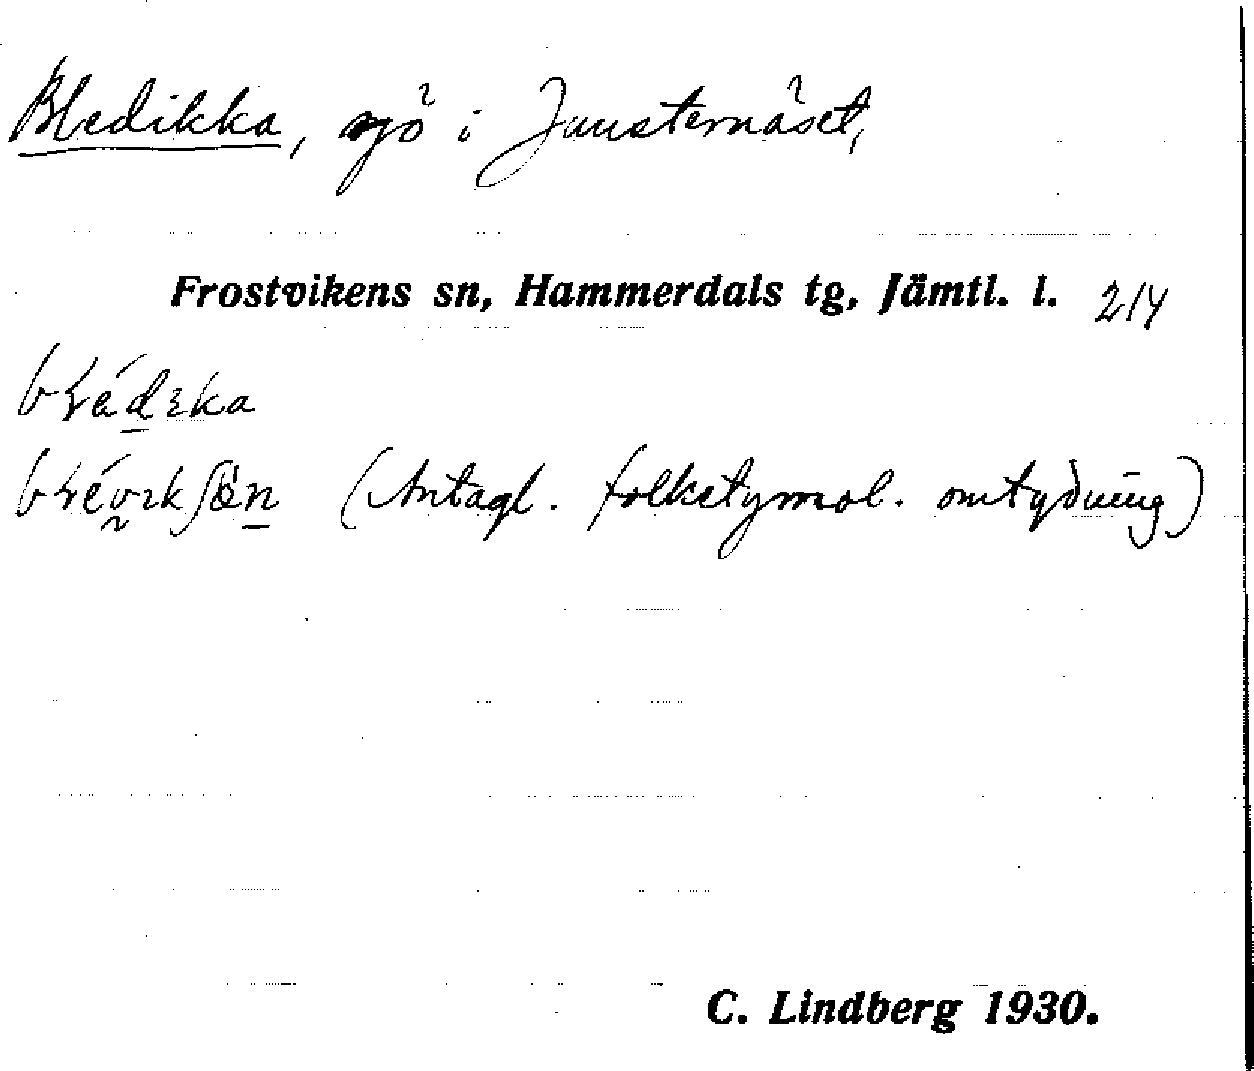 Bledikka, sjö i Junsternäset,
Frostvikens sn, Hammerdals tg, Jämtl. l. 214
(Antagl. folketymol. omtydning)
C. Lindberg 1930.